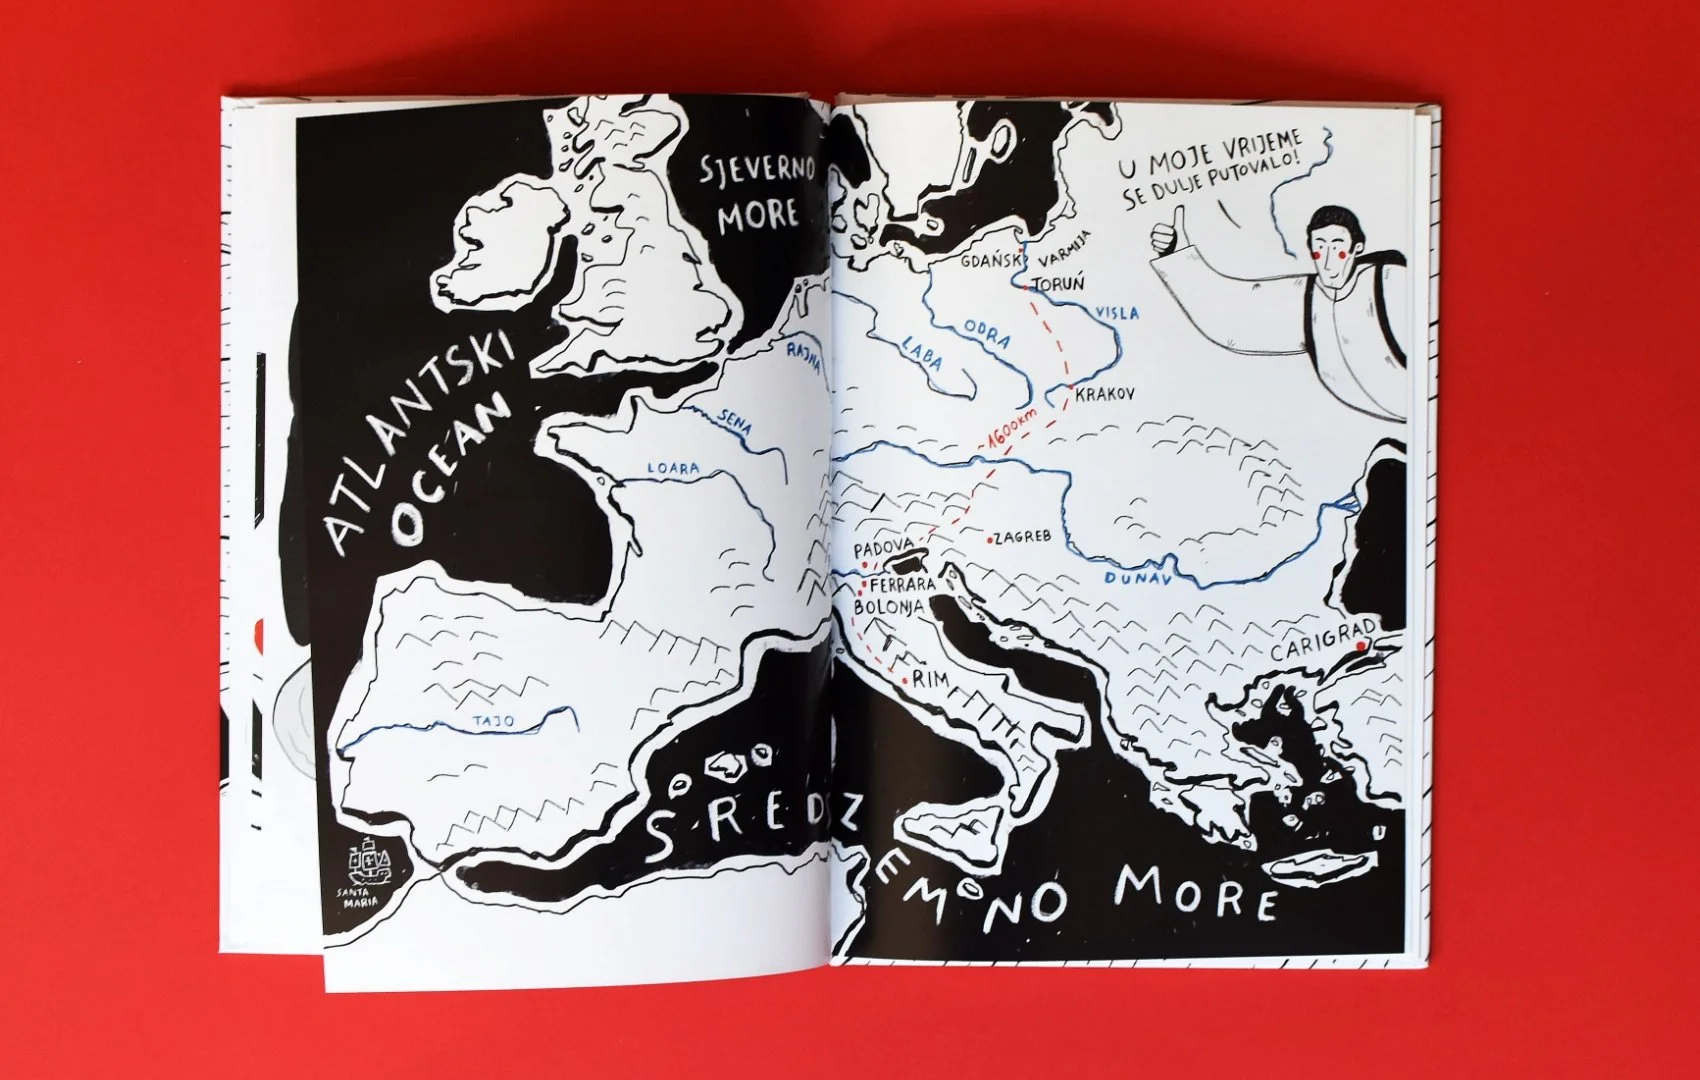 SJEVERNO
MORE
ATLANTSKI
OCEAN
RAJNA
SENA
LOARA
TAJO
SANTA
MARIA
U MOJE VRIJEME
SE DULJE PUTOVALO!
GDAŃSK
VARMIJA
TORUŃ
VISLA
ODRA
LABA
KRAKOV
~1600km
PADOVA
ZAGREB
FERRARA
BOLONJA
DUNAV
CARIGRAD
RIM
SREDOZEMNO MORE